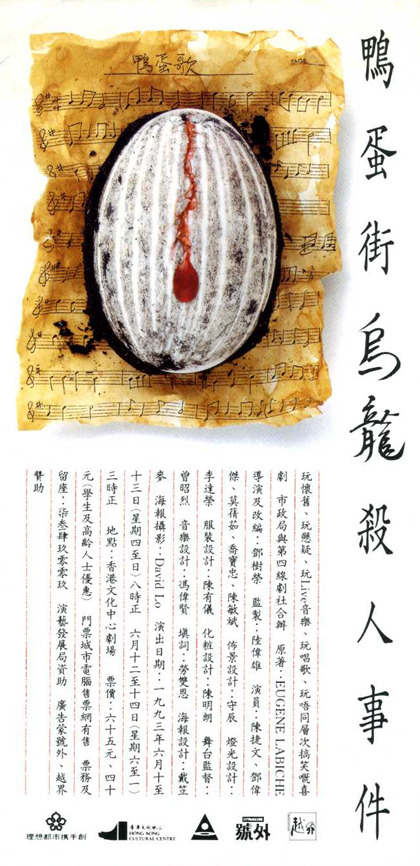 鴨蛋歌
PAGE
鴨蛋街烏龍殺人事件
玩懷舊、玩懸疑、玩Live音樂、玩唱歌、玩唔同層次搞笑嘅喜
劇 市政局與第四線劇社合辦 原著:EUGENE LABICHE
導演及改編:鄧樹榮 監製:陸偉雄 演員:陳捷文、鄧偉
傑、莫蒨茹、喬寶忠、陳敏斌 佈景設計:守辰 燈光設計:
李達榮 服裝設計:陳有儀 化粧設計:陳明朗 舞台監督:
曾昭烈 音樂設計:馮偉賢 填詞:勞雙恩 海報設計:戴笠
麥 海報攝影:David Lo 演出日期:一九九三年六月十至
十三日(星期四至日)八時正 六月十二至十四日(星期六至一)
三時正 地點:香港文化中心劇場 票價:六十五元、四十
元(學生及高齡人士優惠) 門票城市電腦售票網有售 票務及
留座:柒叁肆玖零零玖 演藝發展局資助 廣告蒙號外、越界
贊助
理想都市携手創
香港文化中心
HONG KONG
CULTURAL CENTRE
號外
越界